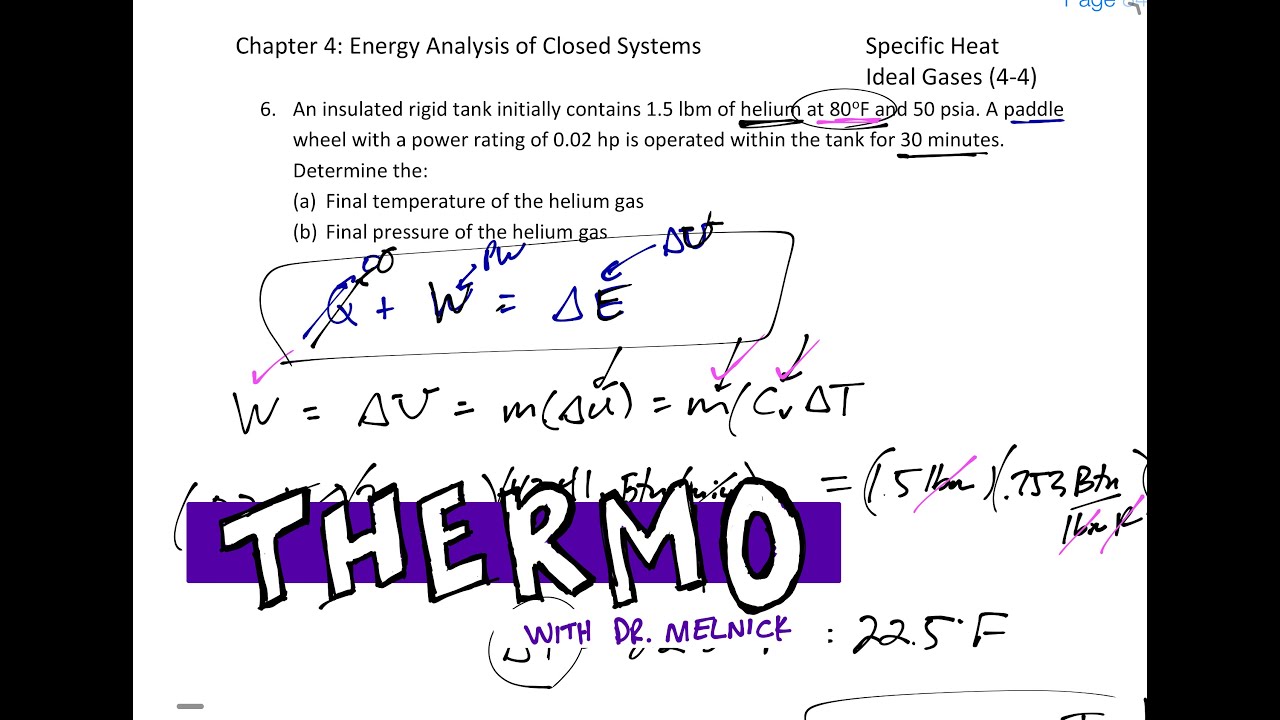 Page
Chapter 4: Energy Analysis of Closed Systems
Specific Heat
Ideal Gases (4-4)
6. An insulated rigid tank initially contains 1.5 lbm of helium at 80ºF and 50 psia. A paddle
wheel with a power rating of 0.02 hp is operated within the tank for 30 minutes.
Determine the:
(a) Final temperature of the helium gas
(b) Final pressure of the helium gas
PW
ΔU
Q + W = ΔE
W = ΔU = m(Δu) = m(Cv ΔT
= (1.5 lbm)(.753 Btu
lbm R
THERMO
WITH DR. MELNICK
: 22.5°F